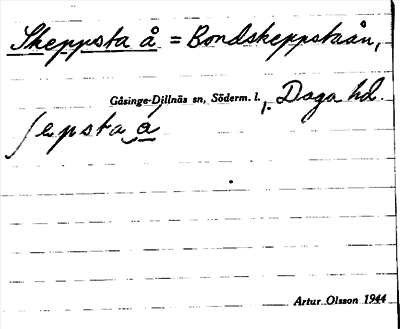 Skeppsta å = Bondskeppstaån,
Gåsinge-Dillnäs sn, Söderm. l., Daga hd.
ʃepsta å
Artur Olsson 1944